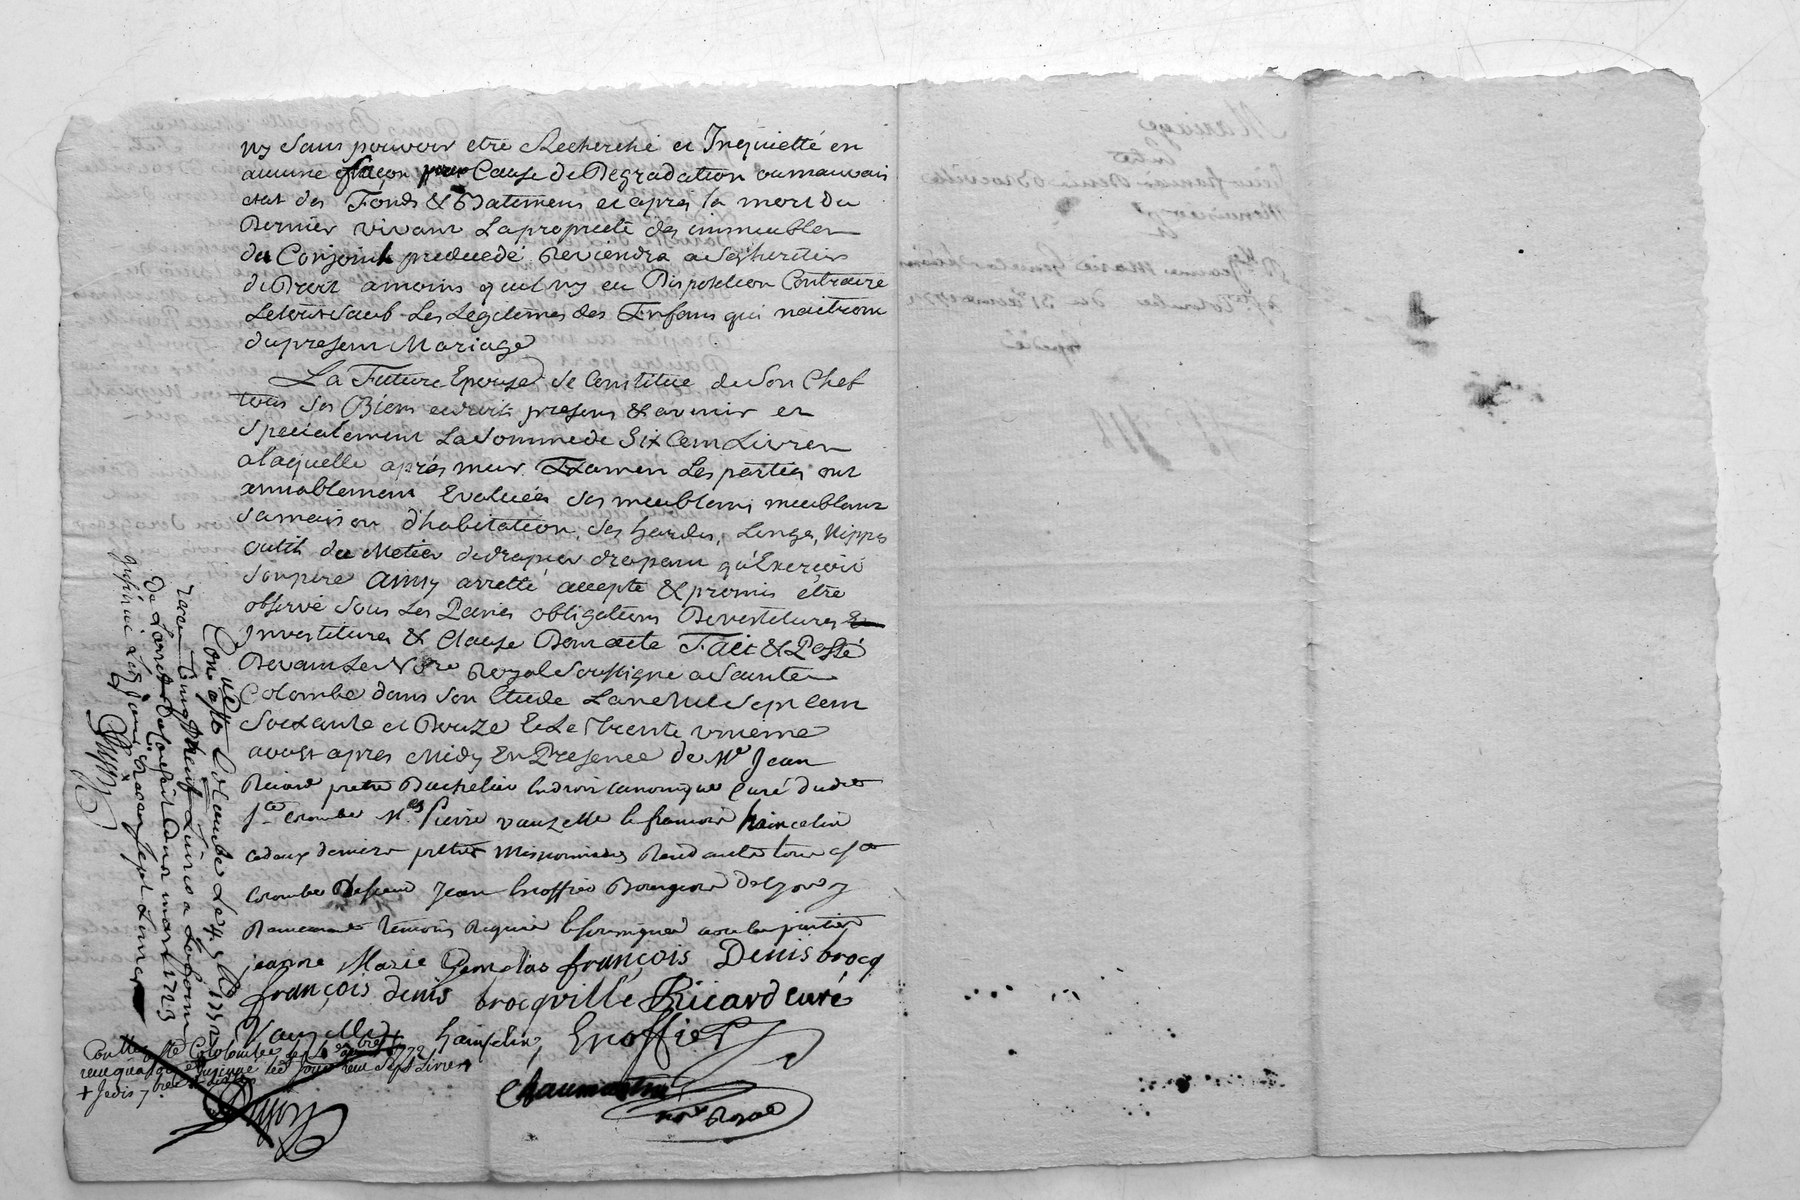 ny sans pouvoir etre Recherché et Inquietté en
aucune façon pour Cause de Degradation ou mauvais
etat des Fonds & Batimens et apres la mort du
Dernier vivant La propriete des immeubles
du Conjoint predecedé Reviendra a Ses heritiers
de Droit amoins quil ny eu Disposition Contraire
Le tout Sauf Les Legitimes des Enfans qui naitront
du present Mariage
La Future Epouse Se Constitue de Son Chef
tous Ses Biens et droits presens & avenir et
Specialement La Somme de Six Cent Livres
a laquelle aprés meur Examen Les parties ont
amiablement Evaluées Ses meubles meublant
Sa maison d'habitation, Ses hardes, Linge, Nippes
outils du Metier de drapier drapant qu'Exerçoit
Son pere Ainsy arretté accepté & promis étre
observé Sous Les Peines obligations Devestitures
Investitures & Clause Dont acte Fait & Passé
Devant Le Nore Royal Soussigné a Sainte
Colombe dans Son Etude Lan Mil Sept Cent
Soixante et Douze Et Le Trente unieme
aoust apres Midy En Presence de Mre Jean
Ricard pretre Bachelier en droit canonique Curé dudit
Ste Colombe Mes Pierre Vauzelle et francois haincelin
ces deux derniers prêtres Missionnaires
Colombe Jean Enoffier Bourgeois de
temoins Requis et soussignés avec les parties
jeanne Marie Gemelas françois Denis brocq
françois denis brocqville Ricard curé
Vauzelle hainselin Enoffier
Chaumartin
nore Royal
Con. a Ste Colombe Le 4 7bre 1772
De L'arret Du Conseil Du mars 1723
Insinué Led. Jour Sept Livres
Con. a Ste Colombe le 1772
et insinué led jour Sept Livres
+ Je dis 7bre